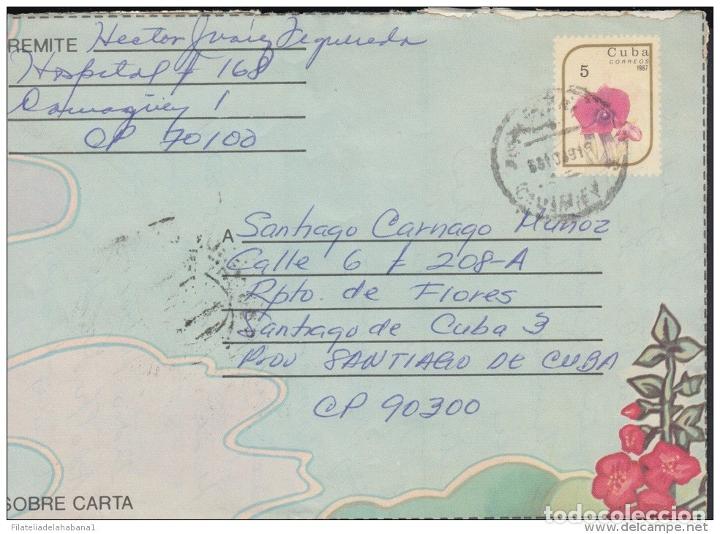 REMITE Hector Juaiz Siquereda
Hospital # 168
Camagüey 1
CP 70100
Cuba
CORREOS
5
1987
A Santiago Carnago Muñoz
Calle 6 # 208-A
Rpto. de Flores
Santiago de Cuba 3
Prov SANTIAGO DE CUBA
CP 90300
SOBRE CARTA
Filateliadelahabana1
todocoleccion.net